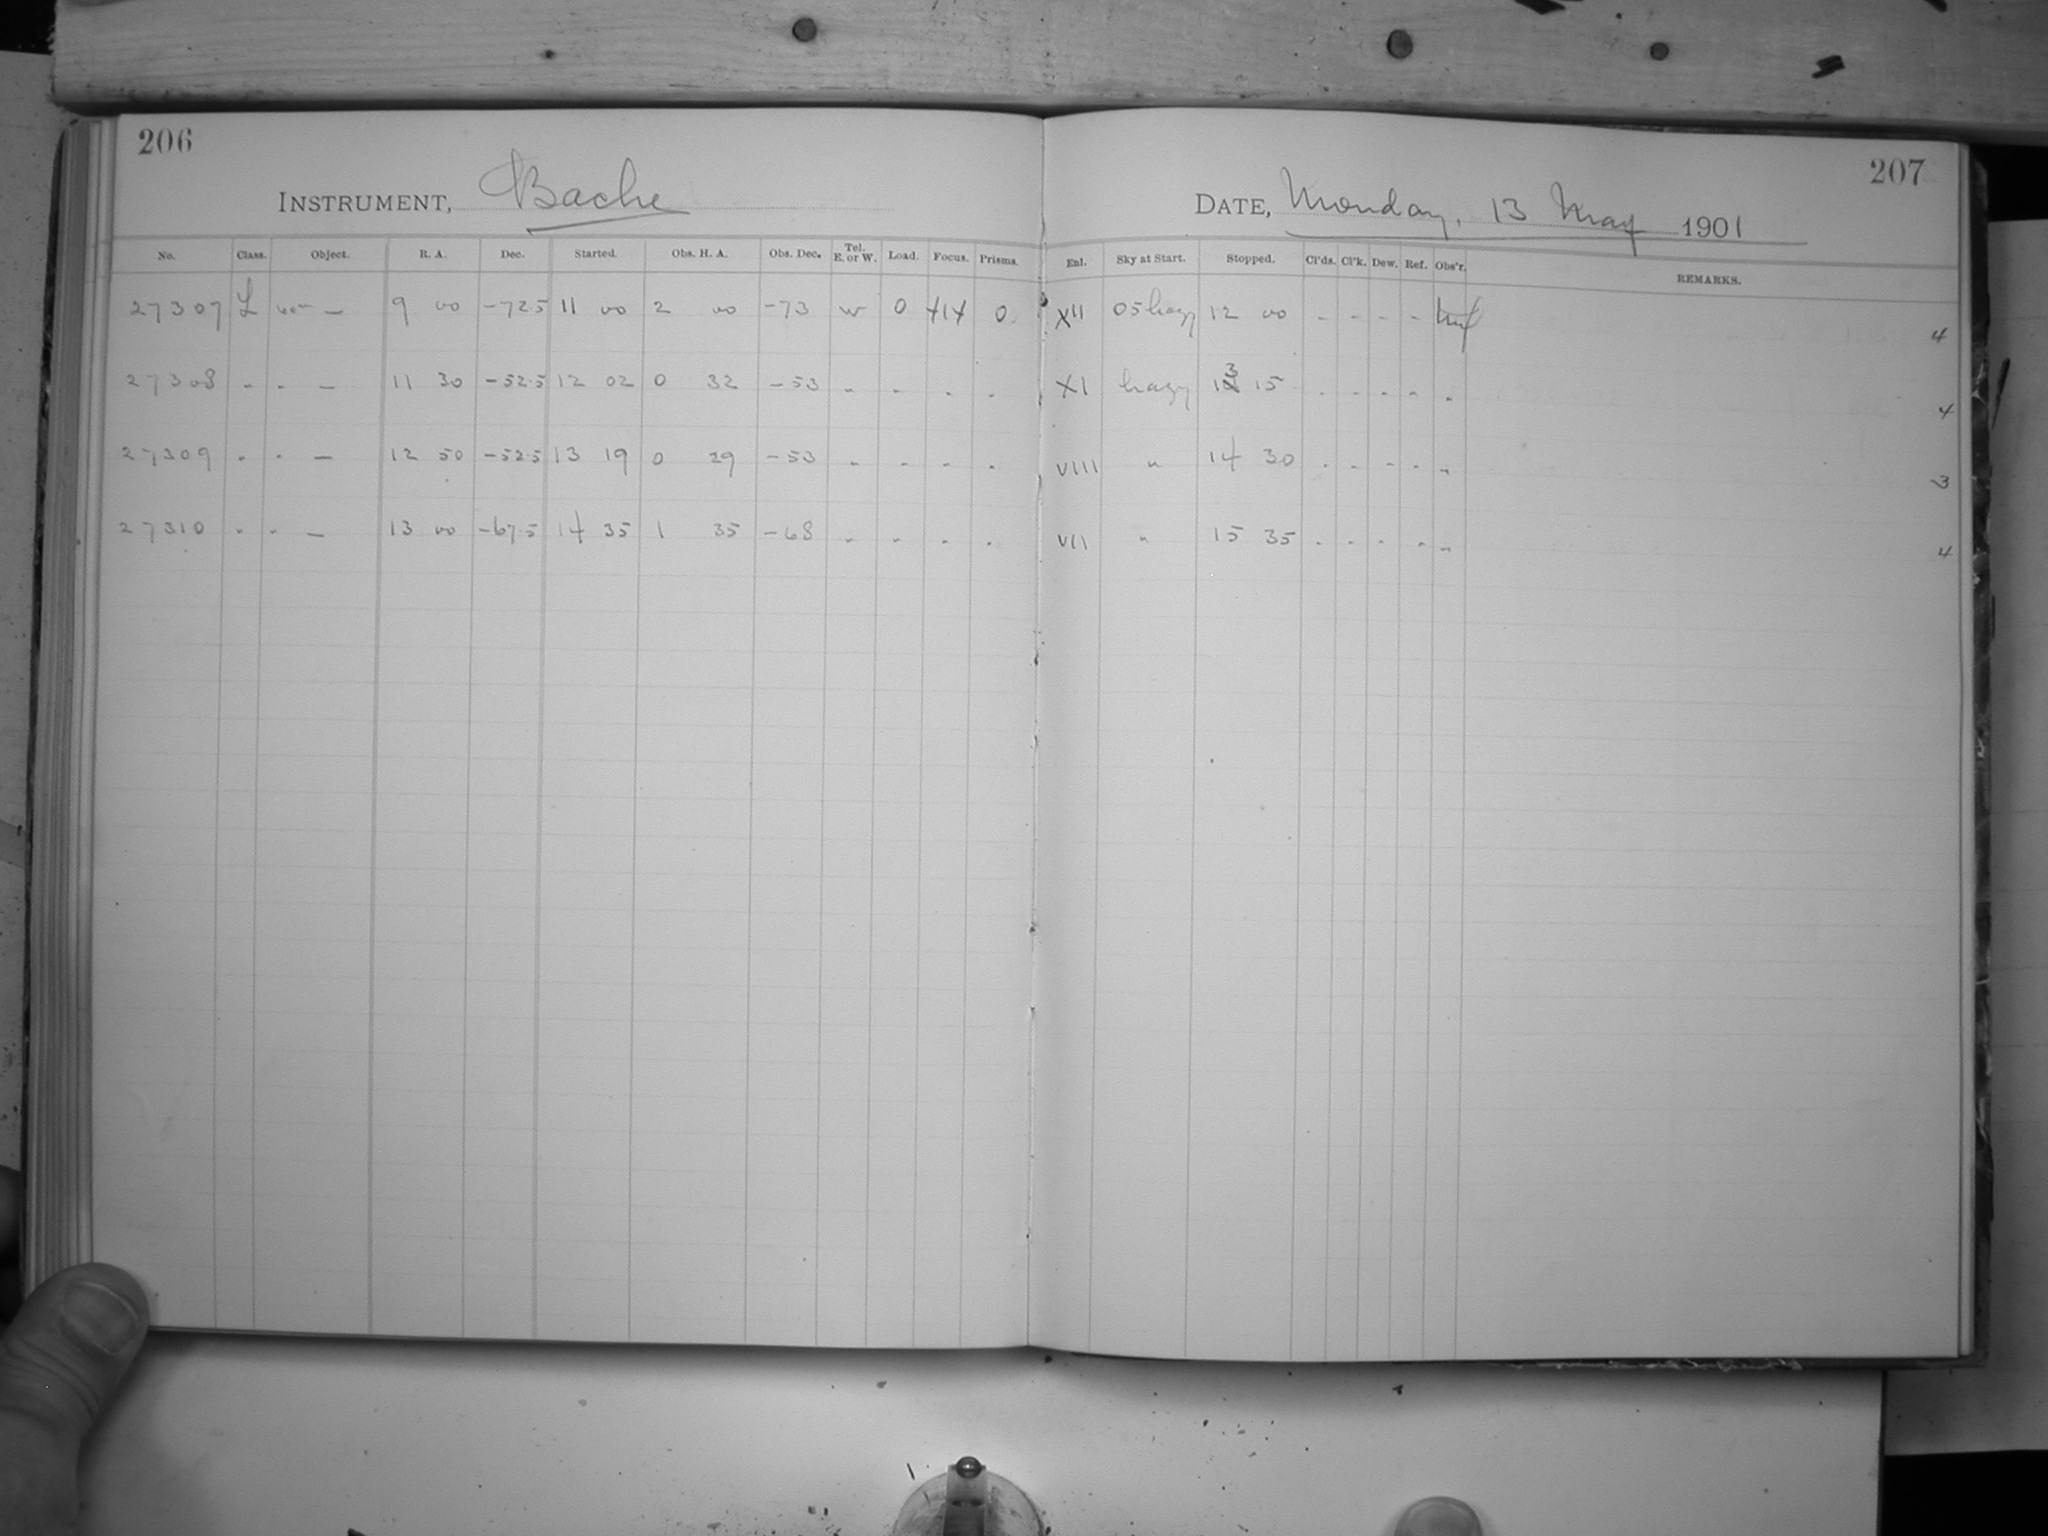 206
INSTRUMENT, Bache
No. Class. Object. R. A. Dec. Started. Obs. H. A. Obs. Dec. Tel. E. or W. Load. Focus. Prisms.
27307 L — 9 00 -72.5 11 00 2 00 -73 W 0 414 0
27308 " " — 11 30 -52.5 12 02 0 32 -53 " " " "
27309 " " — 12 50 -52.5 13 19 0 29 -53 " " " "
27310 " " — 13 00 -67.5 14 35 1 35 -68 " " " "
207
DATE, Monday, 13 May 1901
Enl. Sky at Start. Stopped. Cl'ds. Cl'k. Dew. Ref. Obs'r. REMARKS.
XII 05 hazy 12 00 - - - - 4
XI hazy 13 15 - - - - " 4
VIII " 14 30 - - - - " 3
VII " 15 35 - - - - " 4